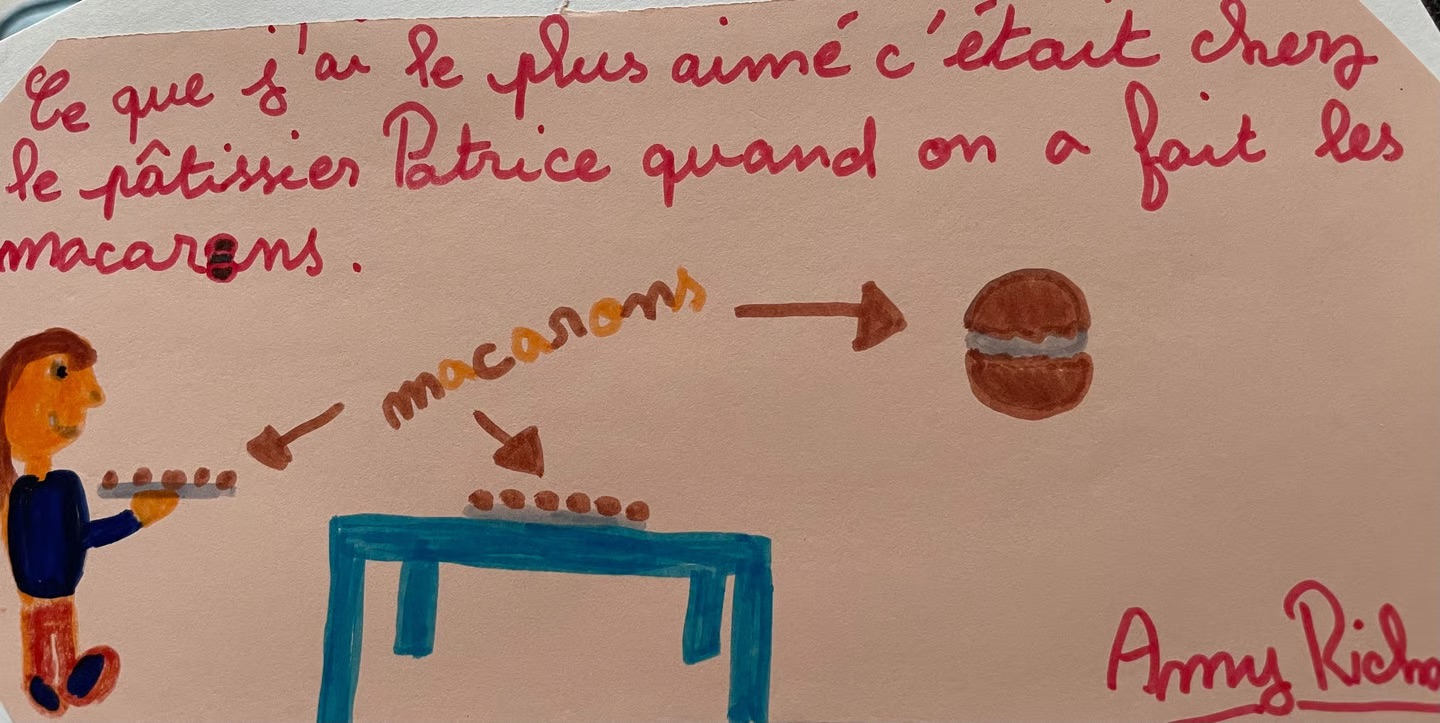 Ce que j'ai le plus aimé c'était chez
le pâtissier Patrice quand on a fait les
macarons.
macarons
Amy